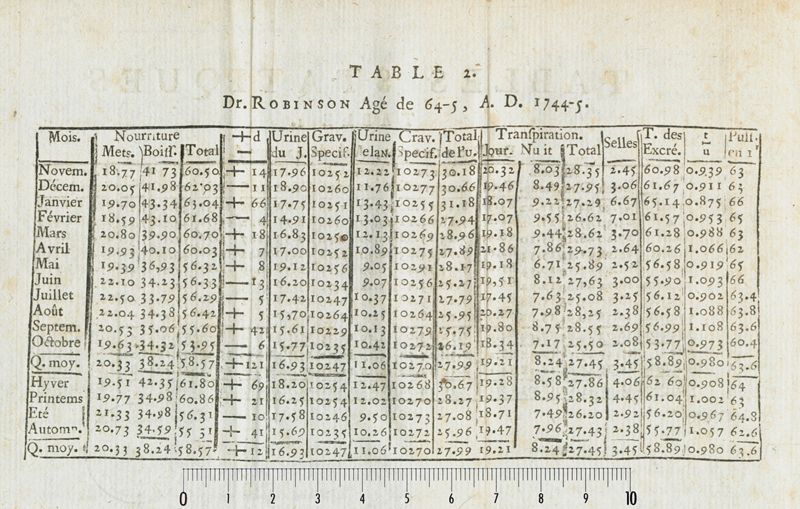 TABLE 2.
Dr. ROBINSON Agé de 64-5, A. D. 1744-5.
Mois. Nourriture + d Urine Grav. Urine Grav. Total Transpiration. Selles T. des t Puls.
Mets. Boiss. Total — du J. Specif. de la N. Specif. de l'u. Jour. Nuit Total Excré. u en 1'
Novem. 18.77 41 73 60.50 + 14 17.96 10252 12.22 10273 30.18 20.32 8.03 28.35 2.45 60.98 0.939 63
Décem. 20.05 41.98 62.03 — 11 18.90 10260 11.76 10277 30.66 19.46 8.49 27.95 3.06 61.67 0.911 63
Janvier 19.70 43.34 63.04 + 66 17.75 10251 13.43 10255 31.18 18.07 9.22 27.29 6.67 65.14 0.875 66
Février 18.59 43.10 61.68 — 4 14.91 10260 13.03 10266 27.94 17.07 9.55 26.62 7.01 61.57 0.953 65
Mars 20.80 39.90 60.70 + 18 16.83 1025 12.13 10269 28.96 19.18 9.44 28.62 3.70 61.28 0.988 63
Avril 19.93 40.10 60.03 + 7 17.00 10252 10.89 10275 27.89 21.86 7.86 29.73 2.64 60.26 1.066 62
Mai 19.39 36,93 56.32 + 8 19.12 10256 9.05 10291 28.17 19.18 6.71 25.89 2.52 56.58 0.919 65
Juin 22.10 34.23 56.33 — 13 16.20 10234 9.07 10256 25.27 19,51 8.12 27,63 3.00 55.90 1.093 66
Juillet 22.50 33.79 56.29 — 5 17.42 10247 10.37 10271 27.79 17.45 7.63 25.08 3.25 56.12 0.902 63.4
Août 22.04 34.38 56.42 + 5 15,70 10264 10.25 10264 25.95 20.27 7.98 28,25 2.38 56.58 1.088 63.8
Septem. 20.53 35.06 55.60 + 42 15.61 10229 10.13 10279 25.75 19.80 8.75 28.55 2.69 56.99 1.108 63.6
Octobre 19.63 34.32 53.95 — 6 15.77 10235 10.42 10272 26.19 18.34 7.17 25.50 2.08 53.77 0.973 60.4
Q. moy. 20.33 38.24 58.57 + 121 16.93 10247 11.06 10270 27.99 19.21 8.24 27.45 3.45 58.89 0.980 63.6
Hyver 19.51 42.35 61.80 + 69 18.20 10254 12.47 10268 30.67 19.28 8.58 27.86 4.06 62 60 0.908 64
Printems 19.77 34.98 60.86 + 21 16.25 10254 12.02 10270 28.27 19.37 8.95 28.32 4.45 61.04 1.002 63
Eté 21.33 34.98 56.31 — 10 17.58 10246 9.50 10273 27.08 18.71 7.49 26.20 2.92 56.20 0.967 64.8
Automn. 20.73 34.59 55 31 + 41 15.69 10235 10.26 10272 25.96 19.47 7.96 27.43 2.38 55.77 1.057 62.6
Q. moy. 20.33 38.24 58.57 + 12 16.93 10247 11.06 10270 27.99 19.21 8.24 27.45 3.45 58.89 0.980 63.6
0 1 2 3 4 5 6 7 8 9 10